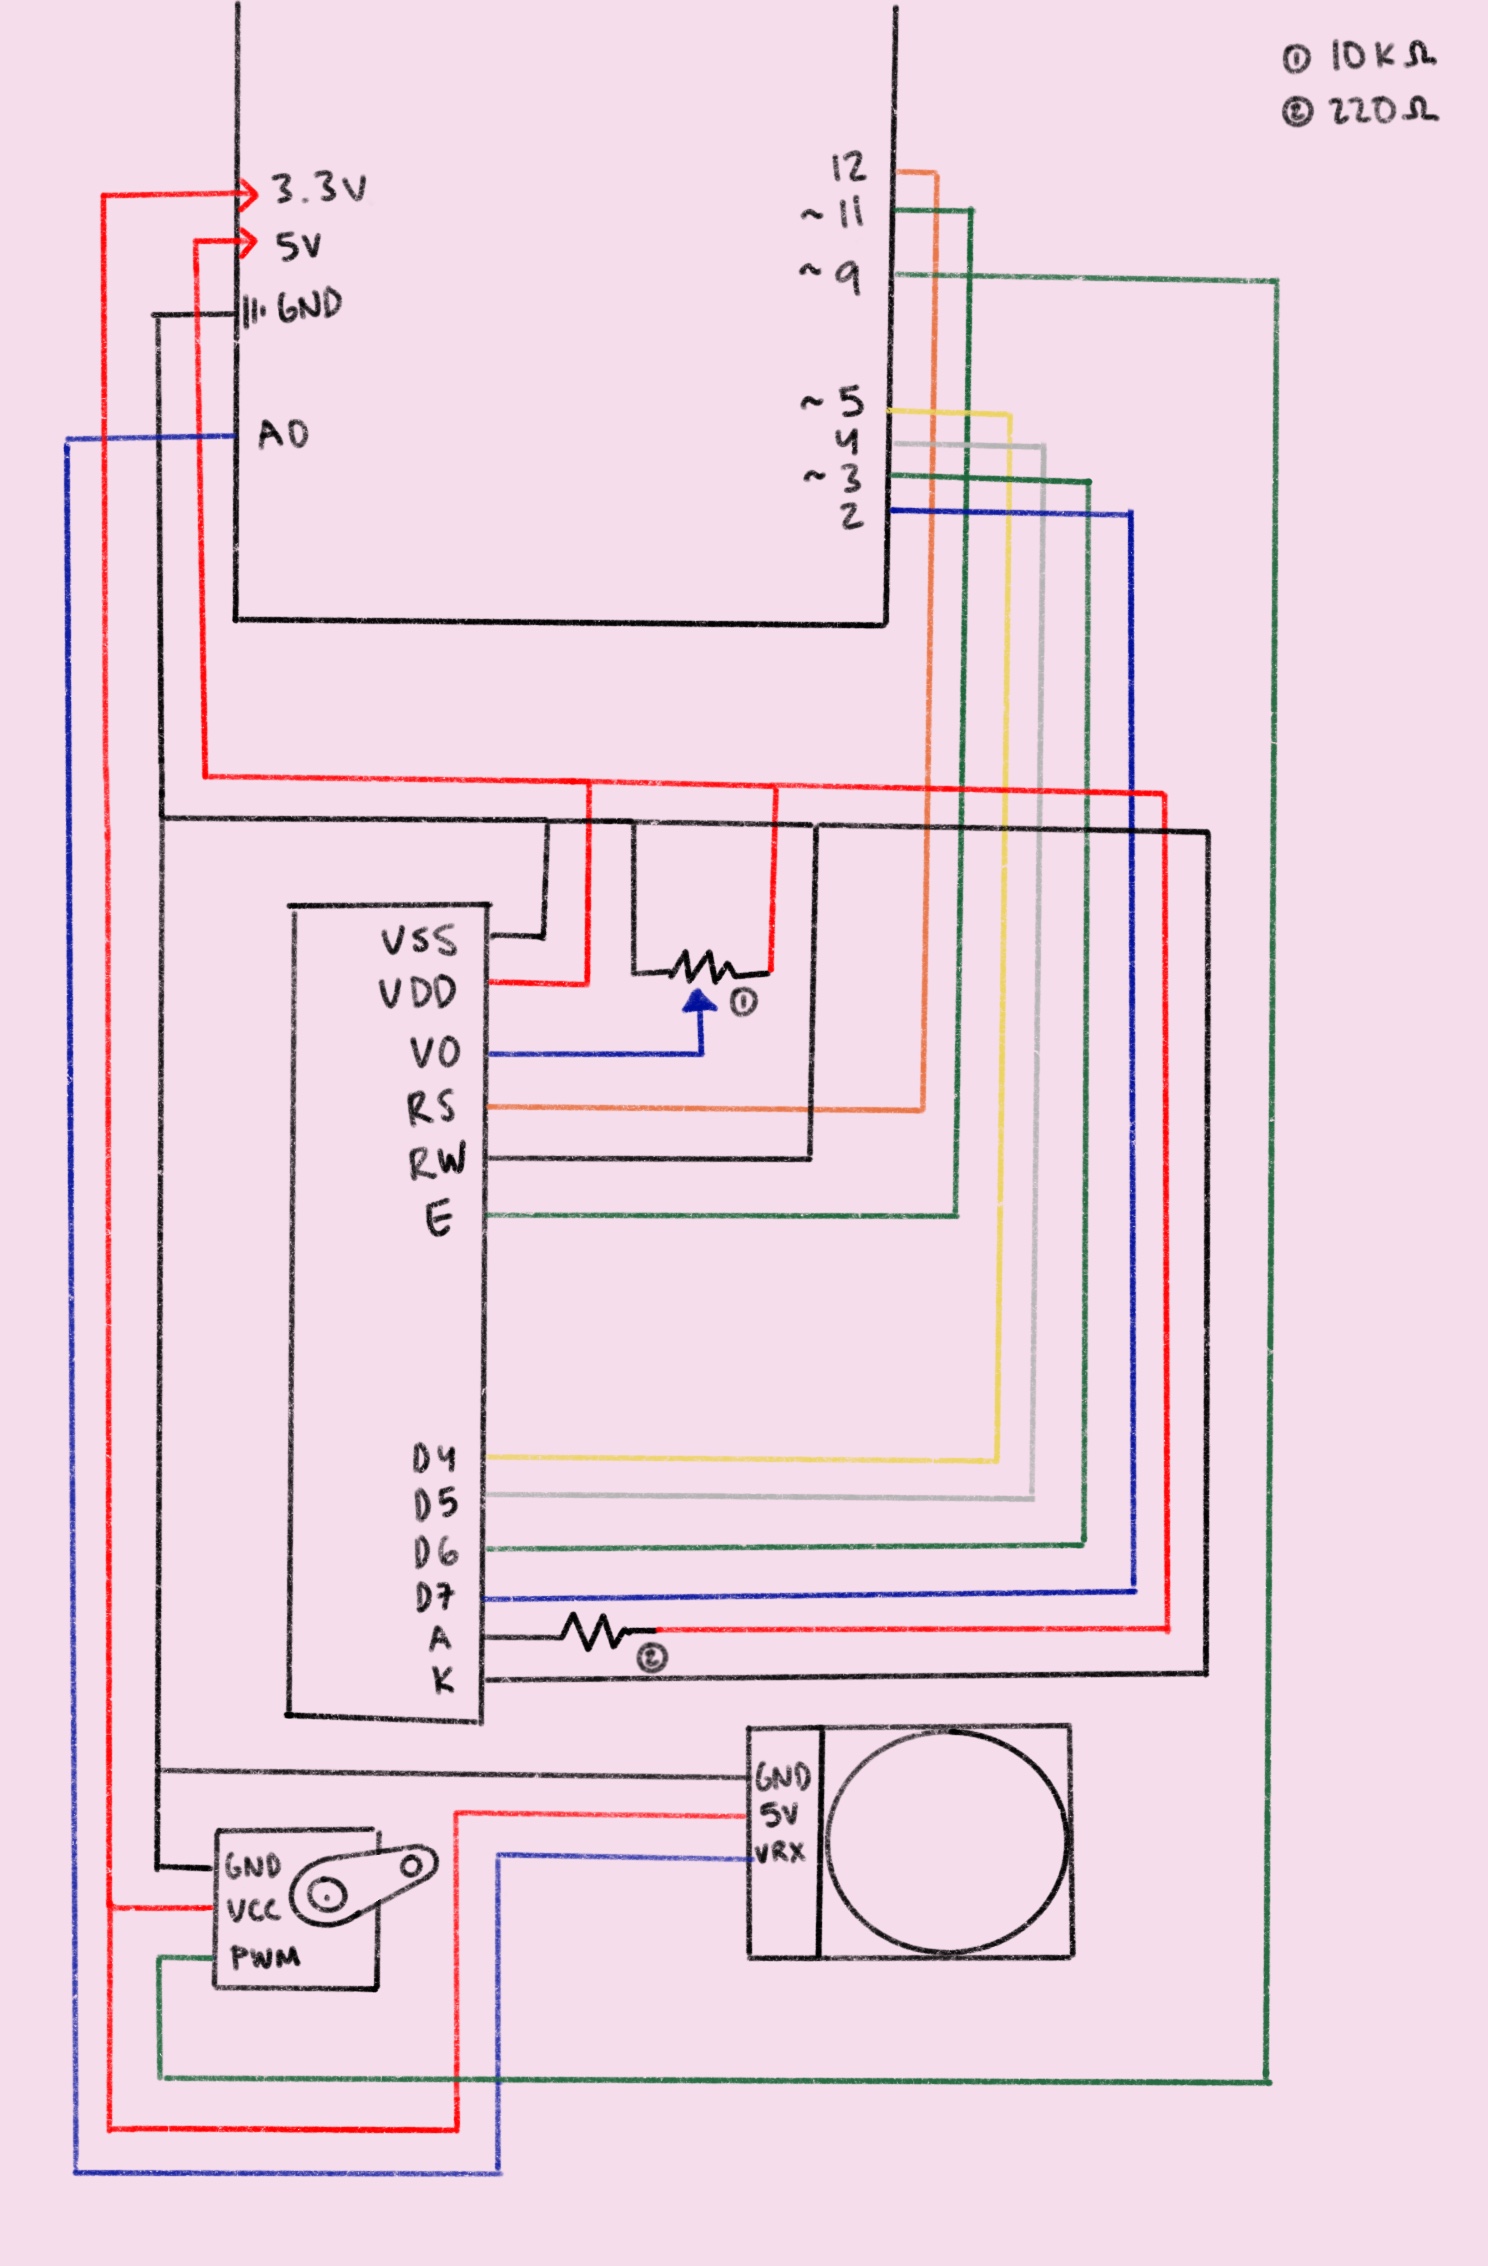 ① 10KΩ
② 220Ω
3.3V
5V
GND
A0
12
~ 11
~ 9
~ 5
4
~ 3
2
VSS
VDD
VO
RS
RW
E
①
D4
D5
D6
D7
A
K
②
GND
5V
VRX
GND
VCC
PWM